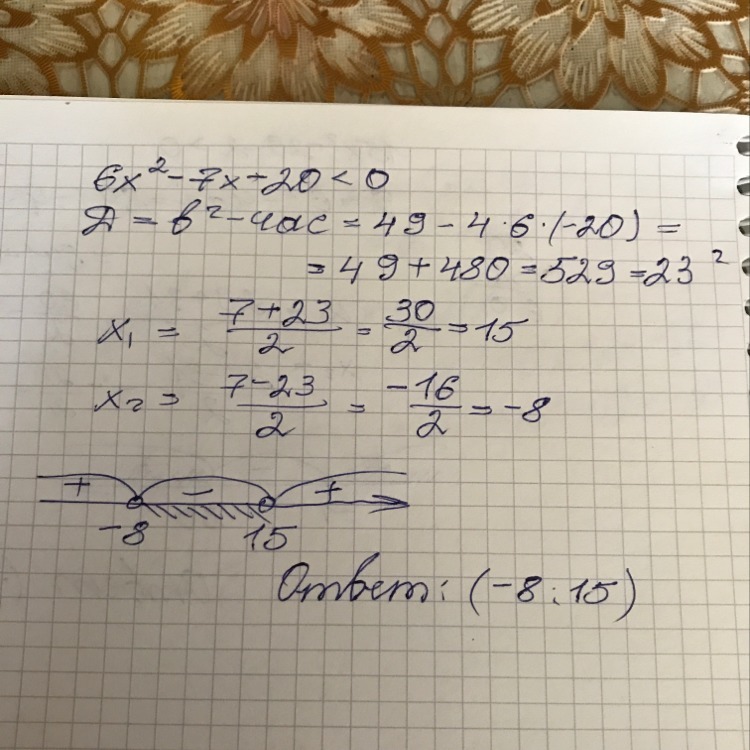 6x² - 7x + 20 < 0
Д = b² - 4ac = 49 - 4·6·(-20) =
= 49 + 480 = 529 = 23²
x₁ = (7+23)/2 = 30/2 = 15
x₂ = (7-23)/2 = -16/2 = -8
+ - +
-8 15
Ответ: (-8; 15)